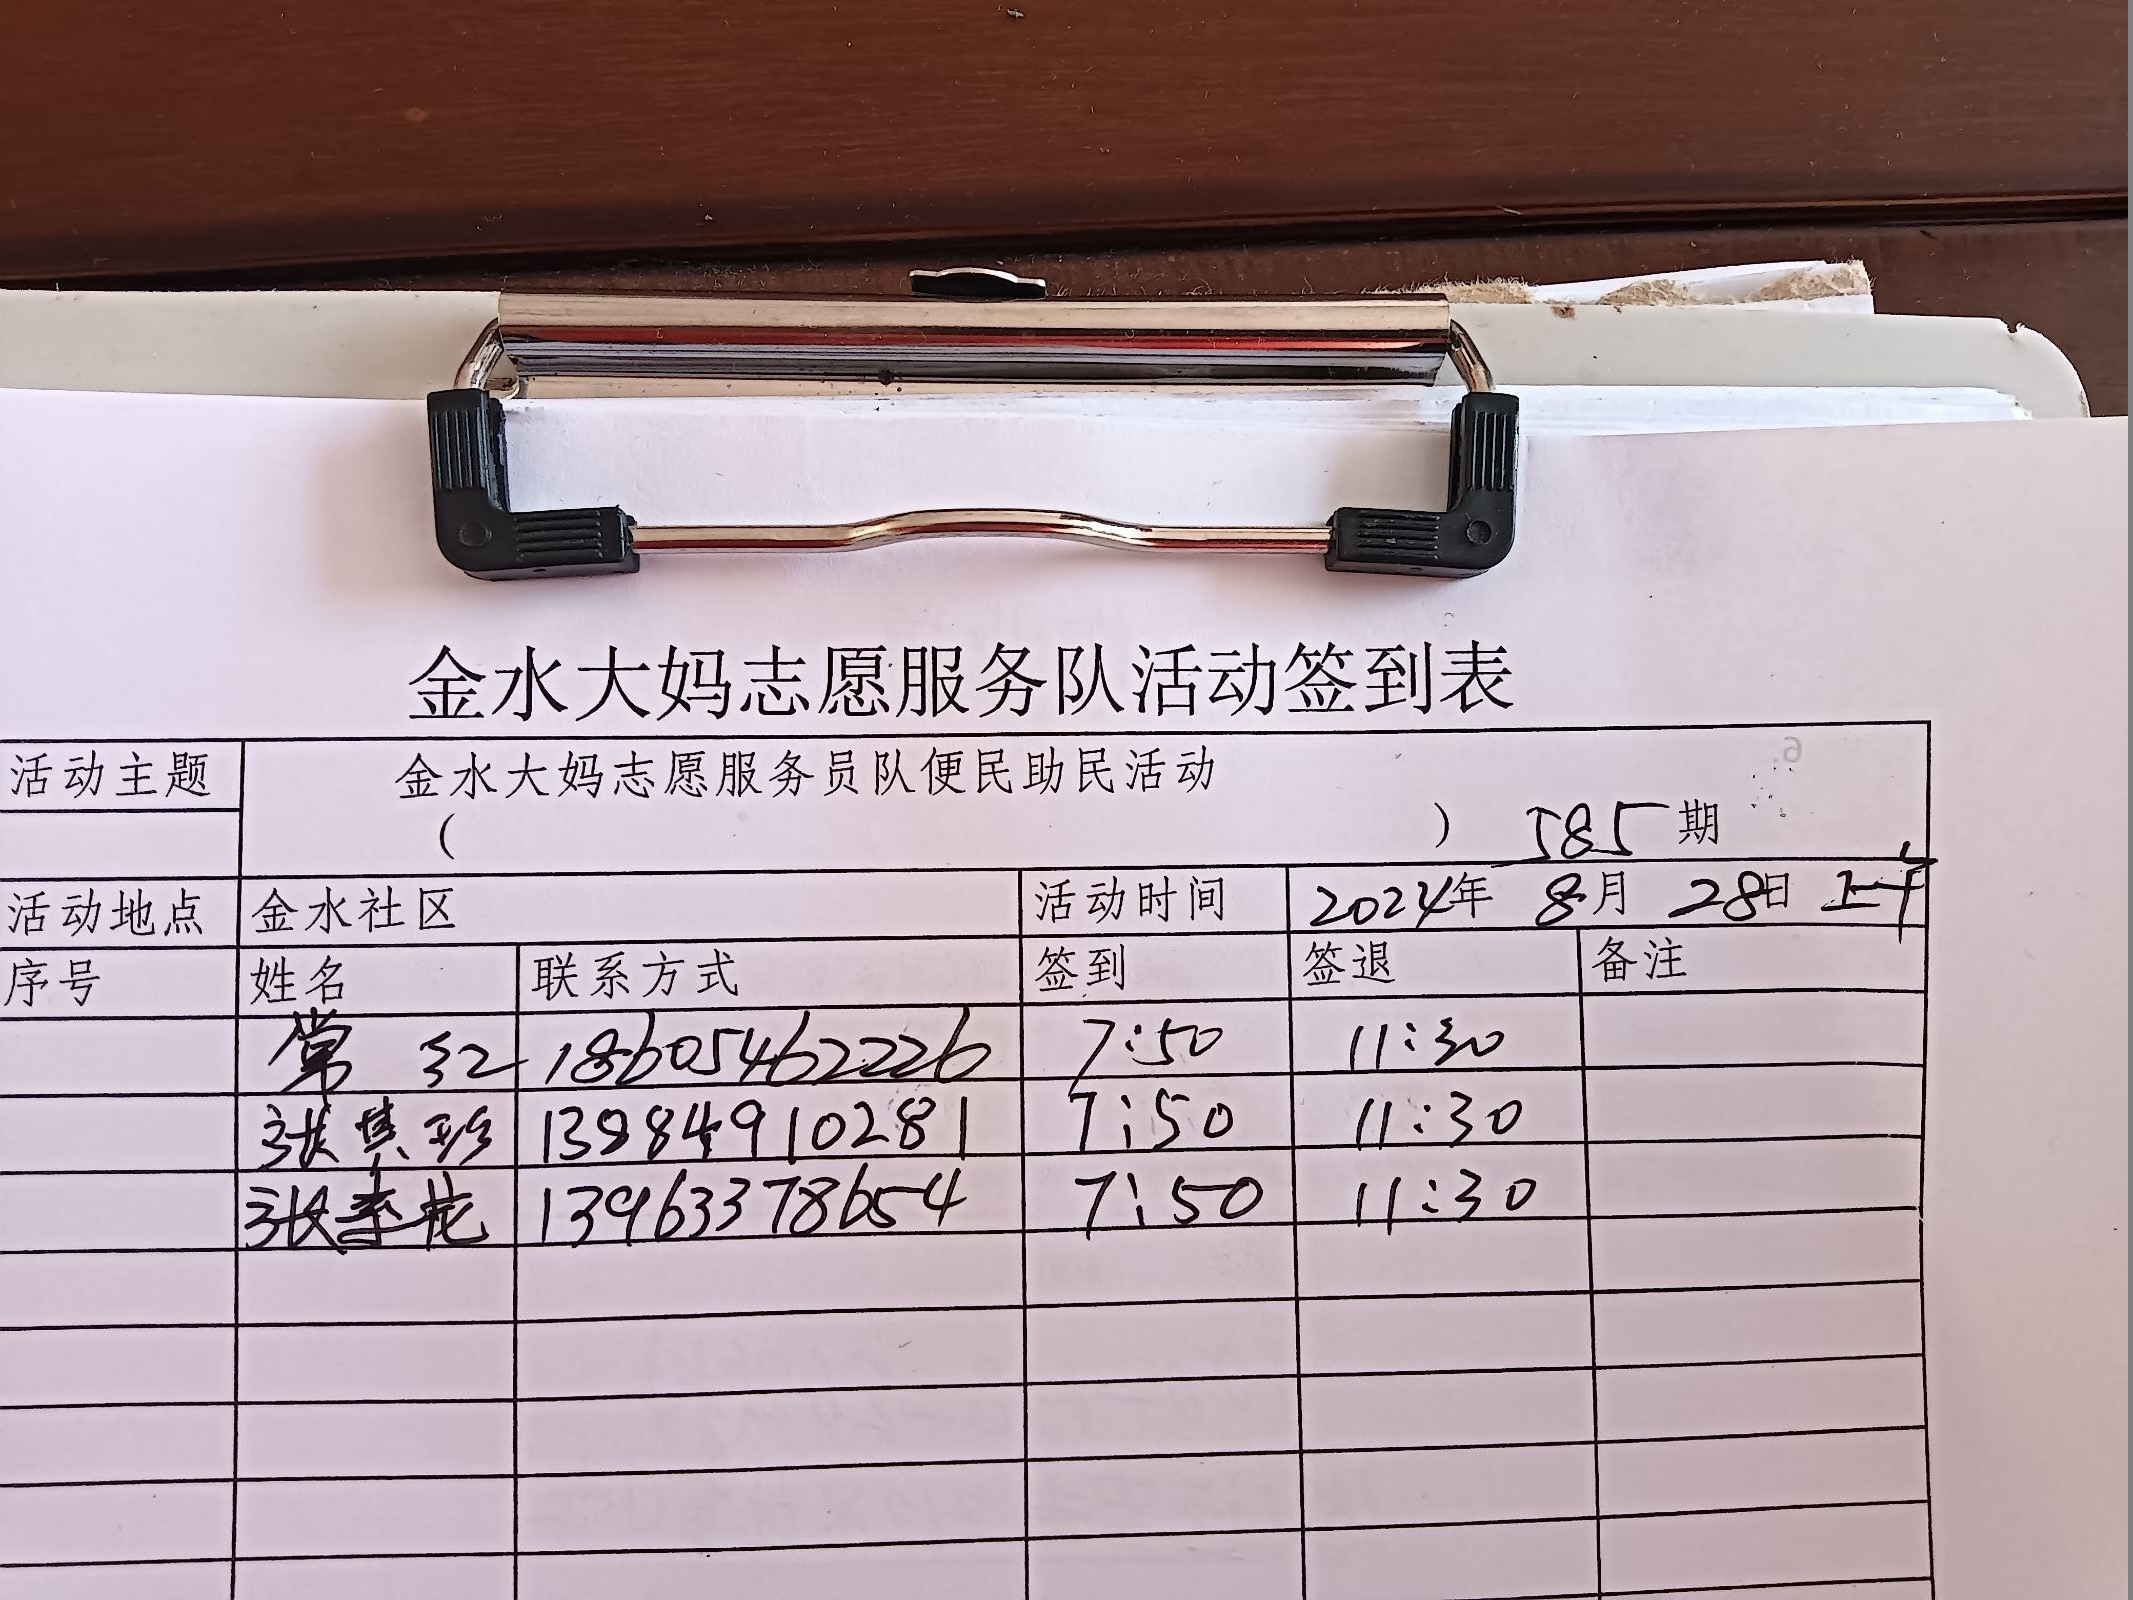 金水大妈志愿服务队活动签到表
活动主题 金水大妈志愿服务员队便民助民活动
( ) 585期
活动地点 金水社区 活动时间 2024年 8月 28日 上午
序号 姓名 联系方式 签到 签退 备注
常红 18605462226 7:50 11:30
张其珍 13984910281 7:50 11:30
张秀花 13963378654 7:50 11:30